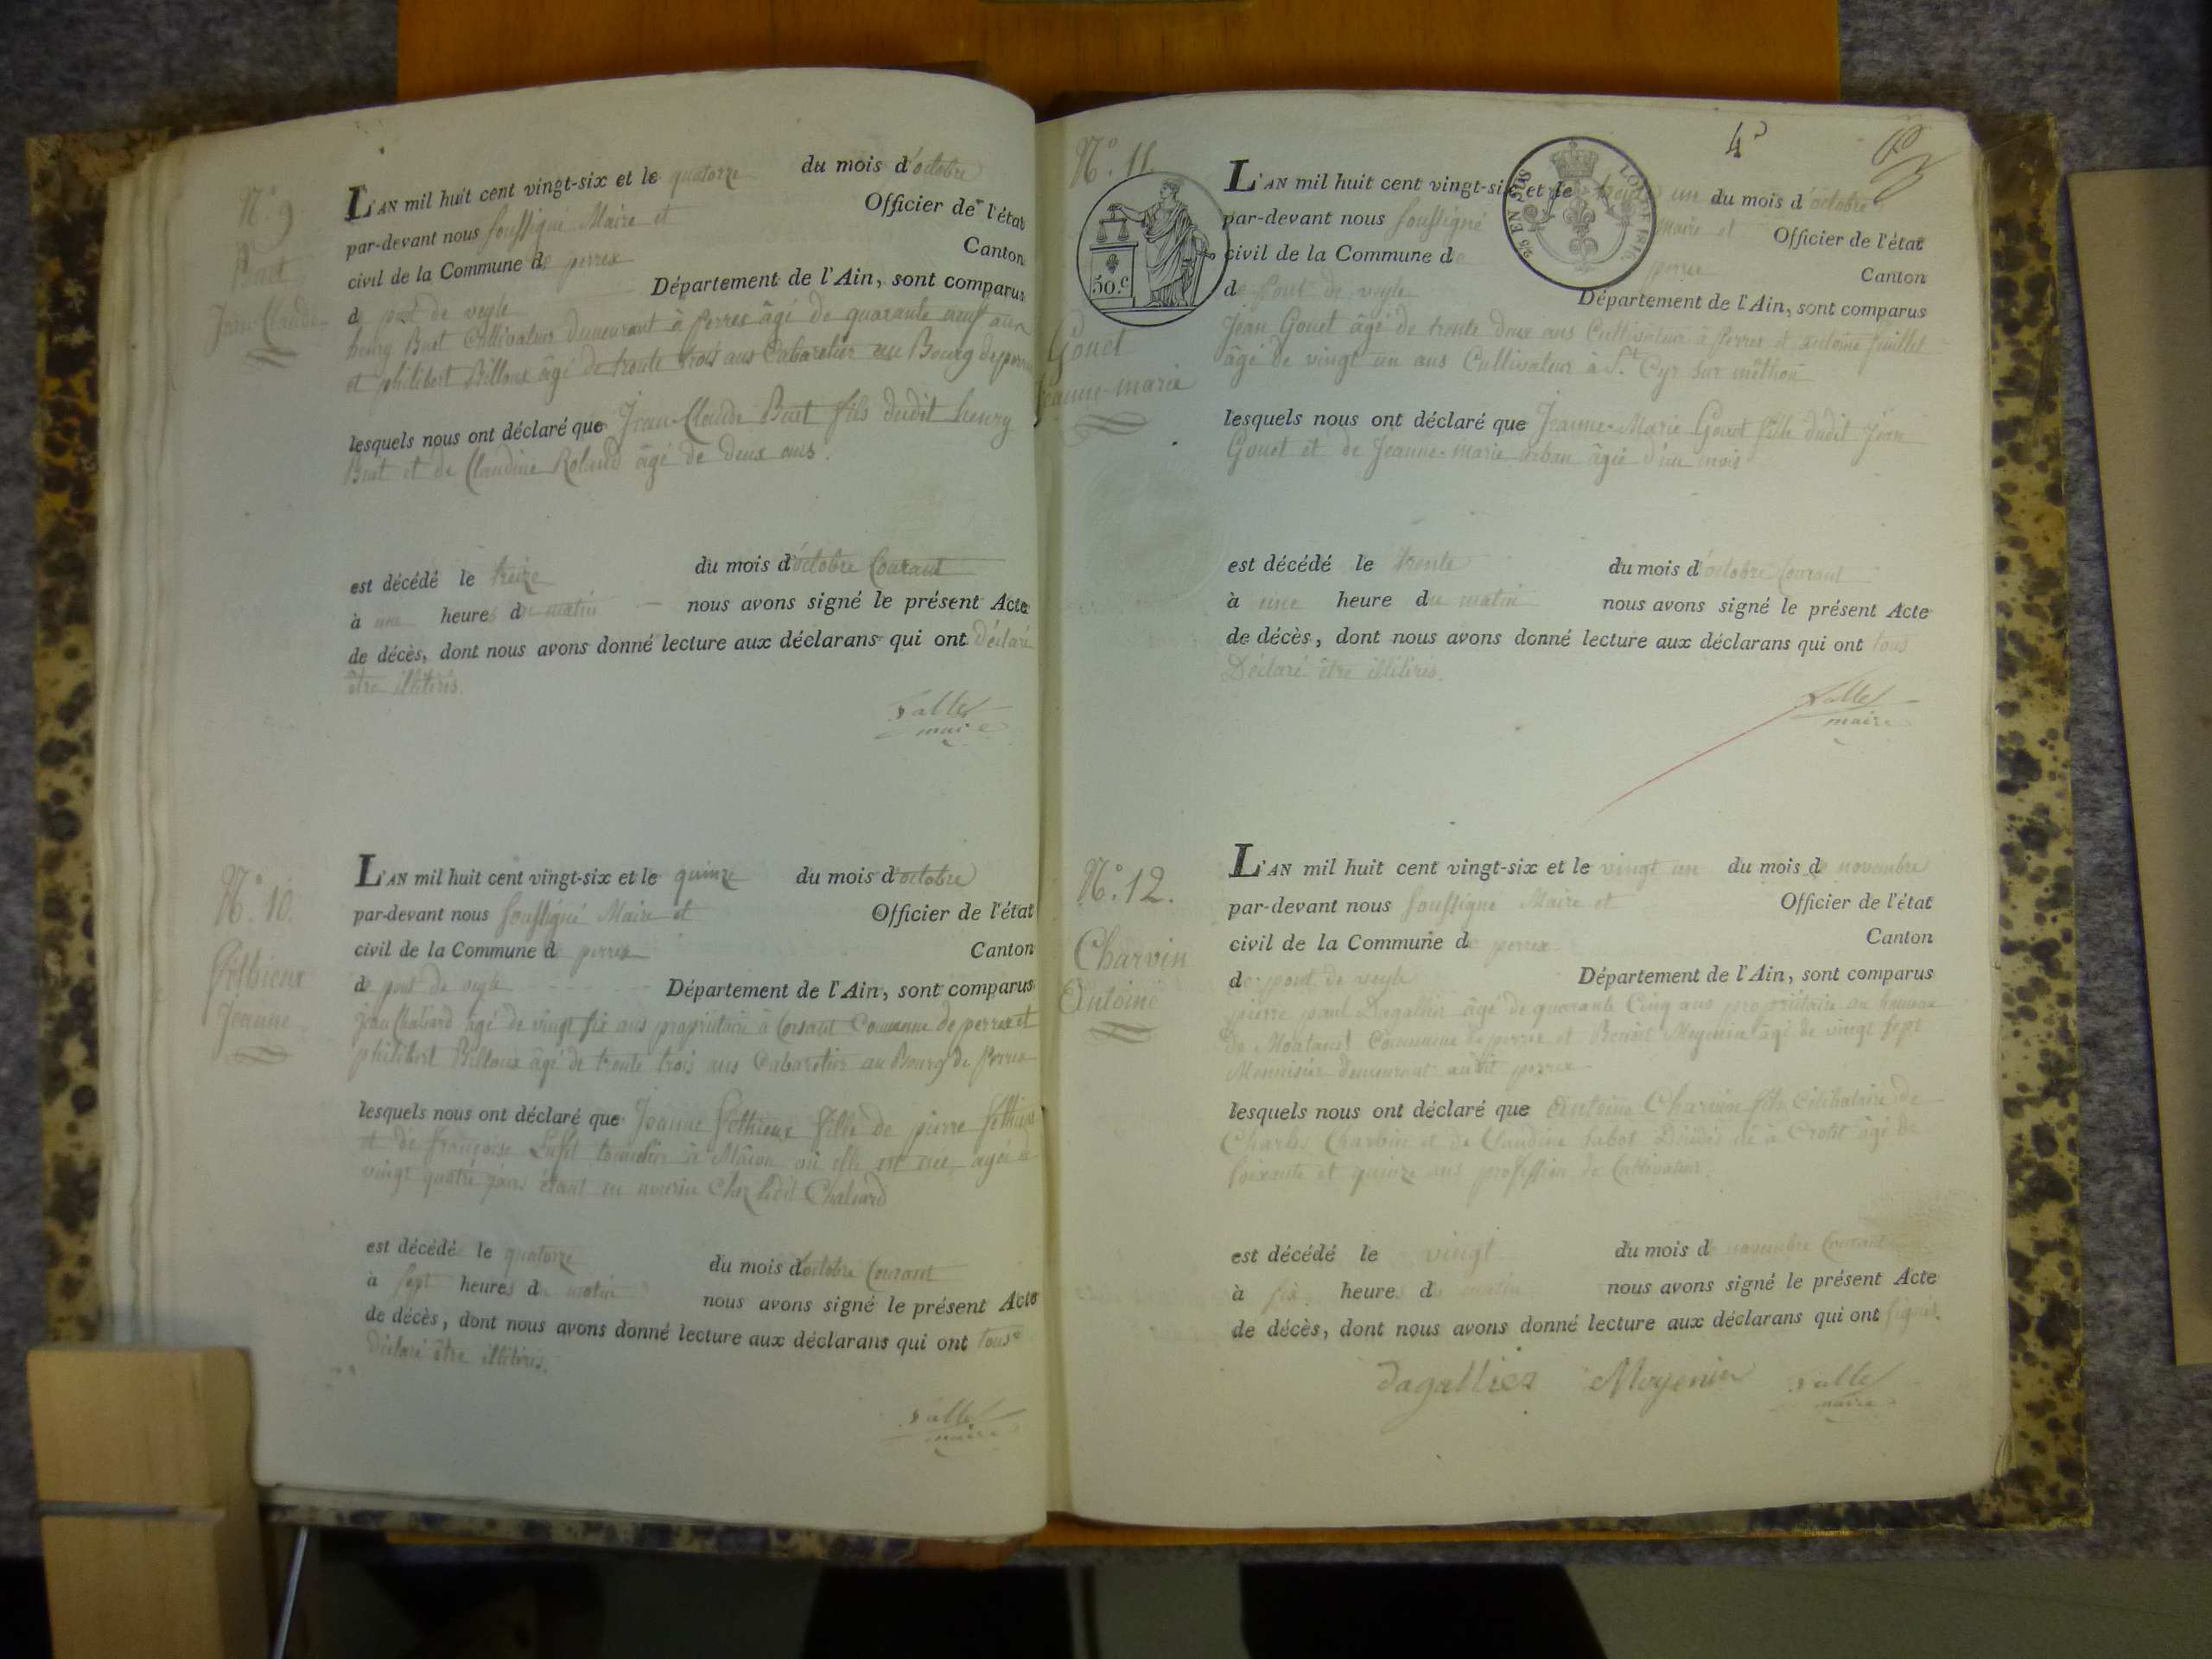 N.º 9.
Buet
Jean-Claude
L'AN mil huit cent vingt-six et le quatorze du mois d'octobre
par-devant nous soussigné Maire et Officier de l'état
civil de la Commune de perrex Canton
de pont de veyle Département de l'Ain, sont comparus
henry Buet Cultivateur demeurant à perrex âgé de quarante neuf ans
et philibert Billoux âgé de trente trois ans Cabaretier au Bourg de perrex
lesquels nous ont déclaré que Jean-Claude Buet fils dudit henry
Buet et de Claudine Roland âgé de deux ans.
est décédé le treize du mois d'octobre Courant
à une heures du matin nous avons signé le présent Acte
de décès, dont nous avons donné lecture aux déclarans qui ont déclaré
être illitérés.
maire
N.º 10.
Féthieux
Jeanne
L'AN mil huit cent vingt-six et le quinze du mois d'octobre
par-devant nous soussigné Maire et Officier de l'état
civil de la Commune de perrex Canton
de pont de veyle Département de l'Ain, sont comparus
jean Chaliard âgé de vingt six ans propriétaire à Corsant Commune de perrex et
philibert Billoux âgé de trente trois ans Cabaretier au Bourg de Perrex
lesquels nous ont déclaré que Jeanne féthieux fille de pierre féthieux
et de françoise à Mâcon où elle est née âgée de
vingt quatre jours étant en nourice Chez ledit Chaliard
est décédé le quatorze du mois d'octobre Courant
à sept heures du matin nous avons signé le présent Acte
de décès, dont nous avons donné lecture aux déclarans qui ont tous
déclaré être illitérés.
maire
4
N.º 11
50.c
25 EN SUS
LOI DE 1816
Gouet
Jeanne-marie
L'AN mil huit cent vingt-six et le trente un du mois d'octobre
par-devant nous soussigné maire et Officier de l'état
civil de la Commune de perrex Canton
de pont de veyle Département de l'Ain, sont comparus
Jean Gouet âgé de trente deux ans Cultivateur à Perrex et antoine fuillet
âgé de vingt un ans Cultivateur à S.t Cyr sur menthon
lesquels nous ont déclaré que Jeanne-Marie Gouet fille dudit Jean
Gouet et de Jeanne-marie âgée d'un mois
est décédé le trente du mois d'octobre Courant
à une heure du matin nous avons signé le présent Acte
de décès, dont nous avons donné lecture aux déclarans qui ont tous
Déclaré être illitérés.
maire
N.º 12.
Charvin
Antoine
L'AN mil huit cent vingt-six et le vingt un du mois de novembre
par-devant nous soussigné Maire et Officier de l'état
civil de la Commune de perrex Canton
de pont de veyle Département de l'Ain, sont comparus
pierre paul Dagallier âgé de quarante Cinq ans propriétaire au hameau
de Commune de perrex et Benoit Moyenin âgé de vingt sept
Menuisier demeurant audit perrex
lesquels nous ont déclaré que Antoine Charvin fils Célibataire de
Charles Charvin et de Claudine Sabot Décédés né à Crotet âgé de
soixante et quinze ans profession de Cultivateur.
est décédé le vingt du mois de novembre Courant
à six heures du matin nous avons signé le présent Acte
de décès, dont nous avons donné lecture aux déclarans qui ont signés.
Dagallier Moyenin
maire